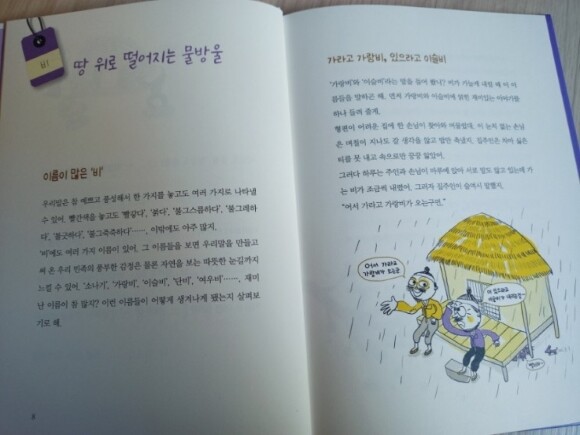 비
땅 위로 떨어지는 물방울
이름이 많은 '비'
우리말은 참 예쁘고 풍성해서 한 가지를 놓고도 여러 가지로 나타낼
수 있어. 빨간색을 놓고도 '빨갛다', '붉다', '불그스름하다', '불그레하
다', '불긋하다', '불그죽죽하다'……, 이밖에도 아주 많지.
'비'에도 여러 가지 이름이 있어. 그 이름들을 보면 우리말을 만들고
써 온 우리 민족의 풍부한 감정은 물론 자연을 보는 따뜻한 눈길까지
느낄 수 있어. '소나기', '가랑비', '이슬비', '단비', '여우비'……, 재미
난 이름이 참 많지? 이런 이름들이 어떻게 생겨나게 됐는지 살펴보
기로 해.
8
가라고 가랑비, 있으라고 이슬비
'가랑비'와 '이슬비'라는 말을 들어 봤니? 비가 가늘게 내릴 때 이 이
름들을 말하곤 해. 먼저 가랑비와 이슬비에 얽힌 재미있는 이야기를
하나 들려 줄게.
형편이 어려운 집에 한 손님이 찾아와 머물렀대. 이 눈치 없는 손님
은 며칠이 지나도 갈 생각을 않고 말만 축냈지. 집주인은 차마 싫은
티를 못 내고 속으로만 끙끙 앓았어.
그러다 하루는 주인과 손님이 마루에 앉아 서로 말도 않고 있는데 가
는 비가 조금씩 내렸어. 그러자 집주인이 슬며시 말했지.
"어서 가라고 가랑비가 오는구먼."
어서 가라고
가랑비가 오는군